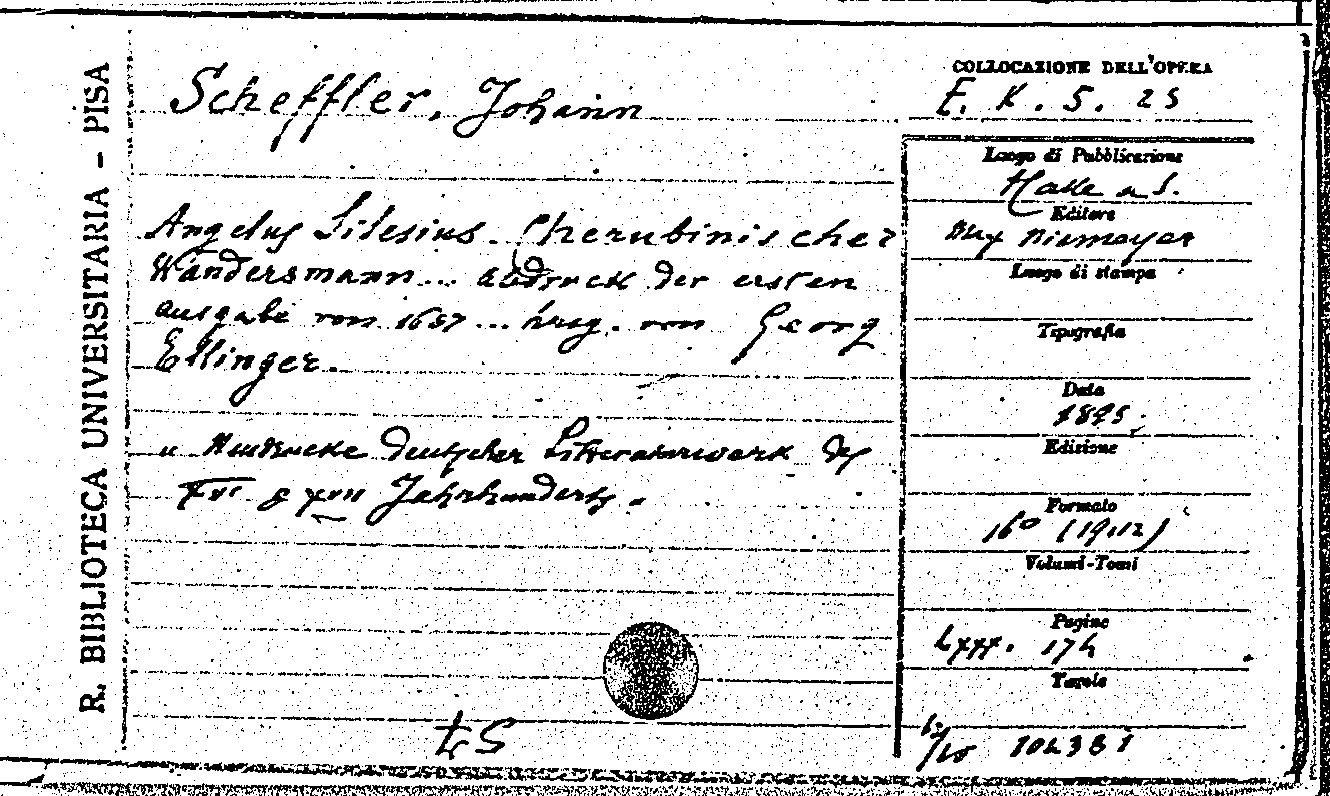 R. BIBLIOTECA UNIVERSITARIA - PISA
Scheffler, Johann
Angelus Silesius. Cherubinischer
Wandersmann... abdruck der ersten
ausgabe von 1657... hrsg. von Georg
Ellinger.
Neudrucke deutscher Literaturwerk des
XVI & XVII Jahrhunderts.
COLLOCAZIONE DELL'OPERA
F. K. 5. 25
Luogo di Pubblicazione
Halle a S.
Editore
Max Niemeyer
Luogo di stampa
Tipografia
Data
1895
Edizione
Formato
16° (19.12)
Volumi-Tomi
Pagine
LXXX. 174
Tavole
104381